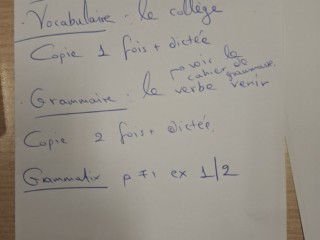 . Vocabulaire : le collège
Copie 1 fois + dictée
→ voir le
cahier de
grammaire
. Grammaire : le verbe venir
Copie 2 fois + dictée.
Grammatix p 71 ex 1/2